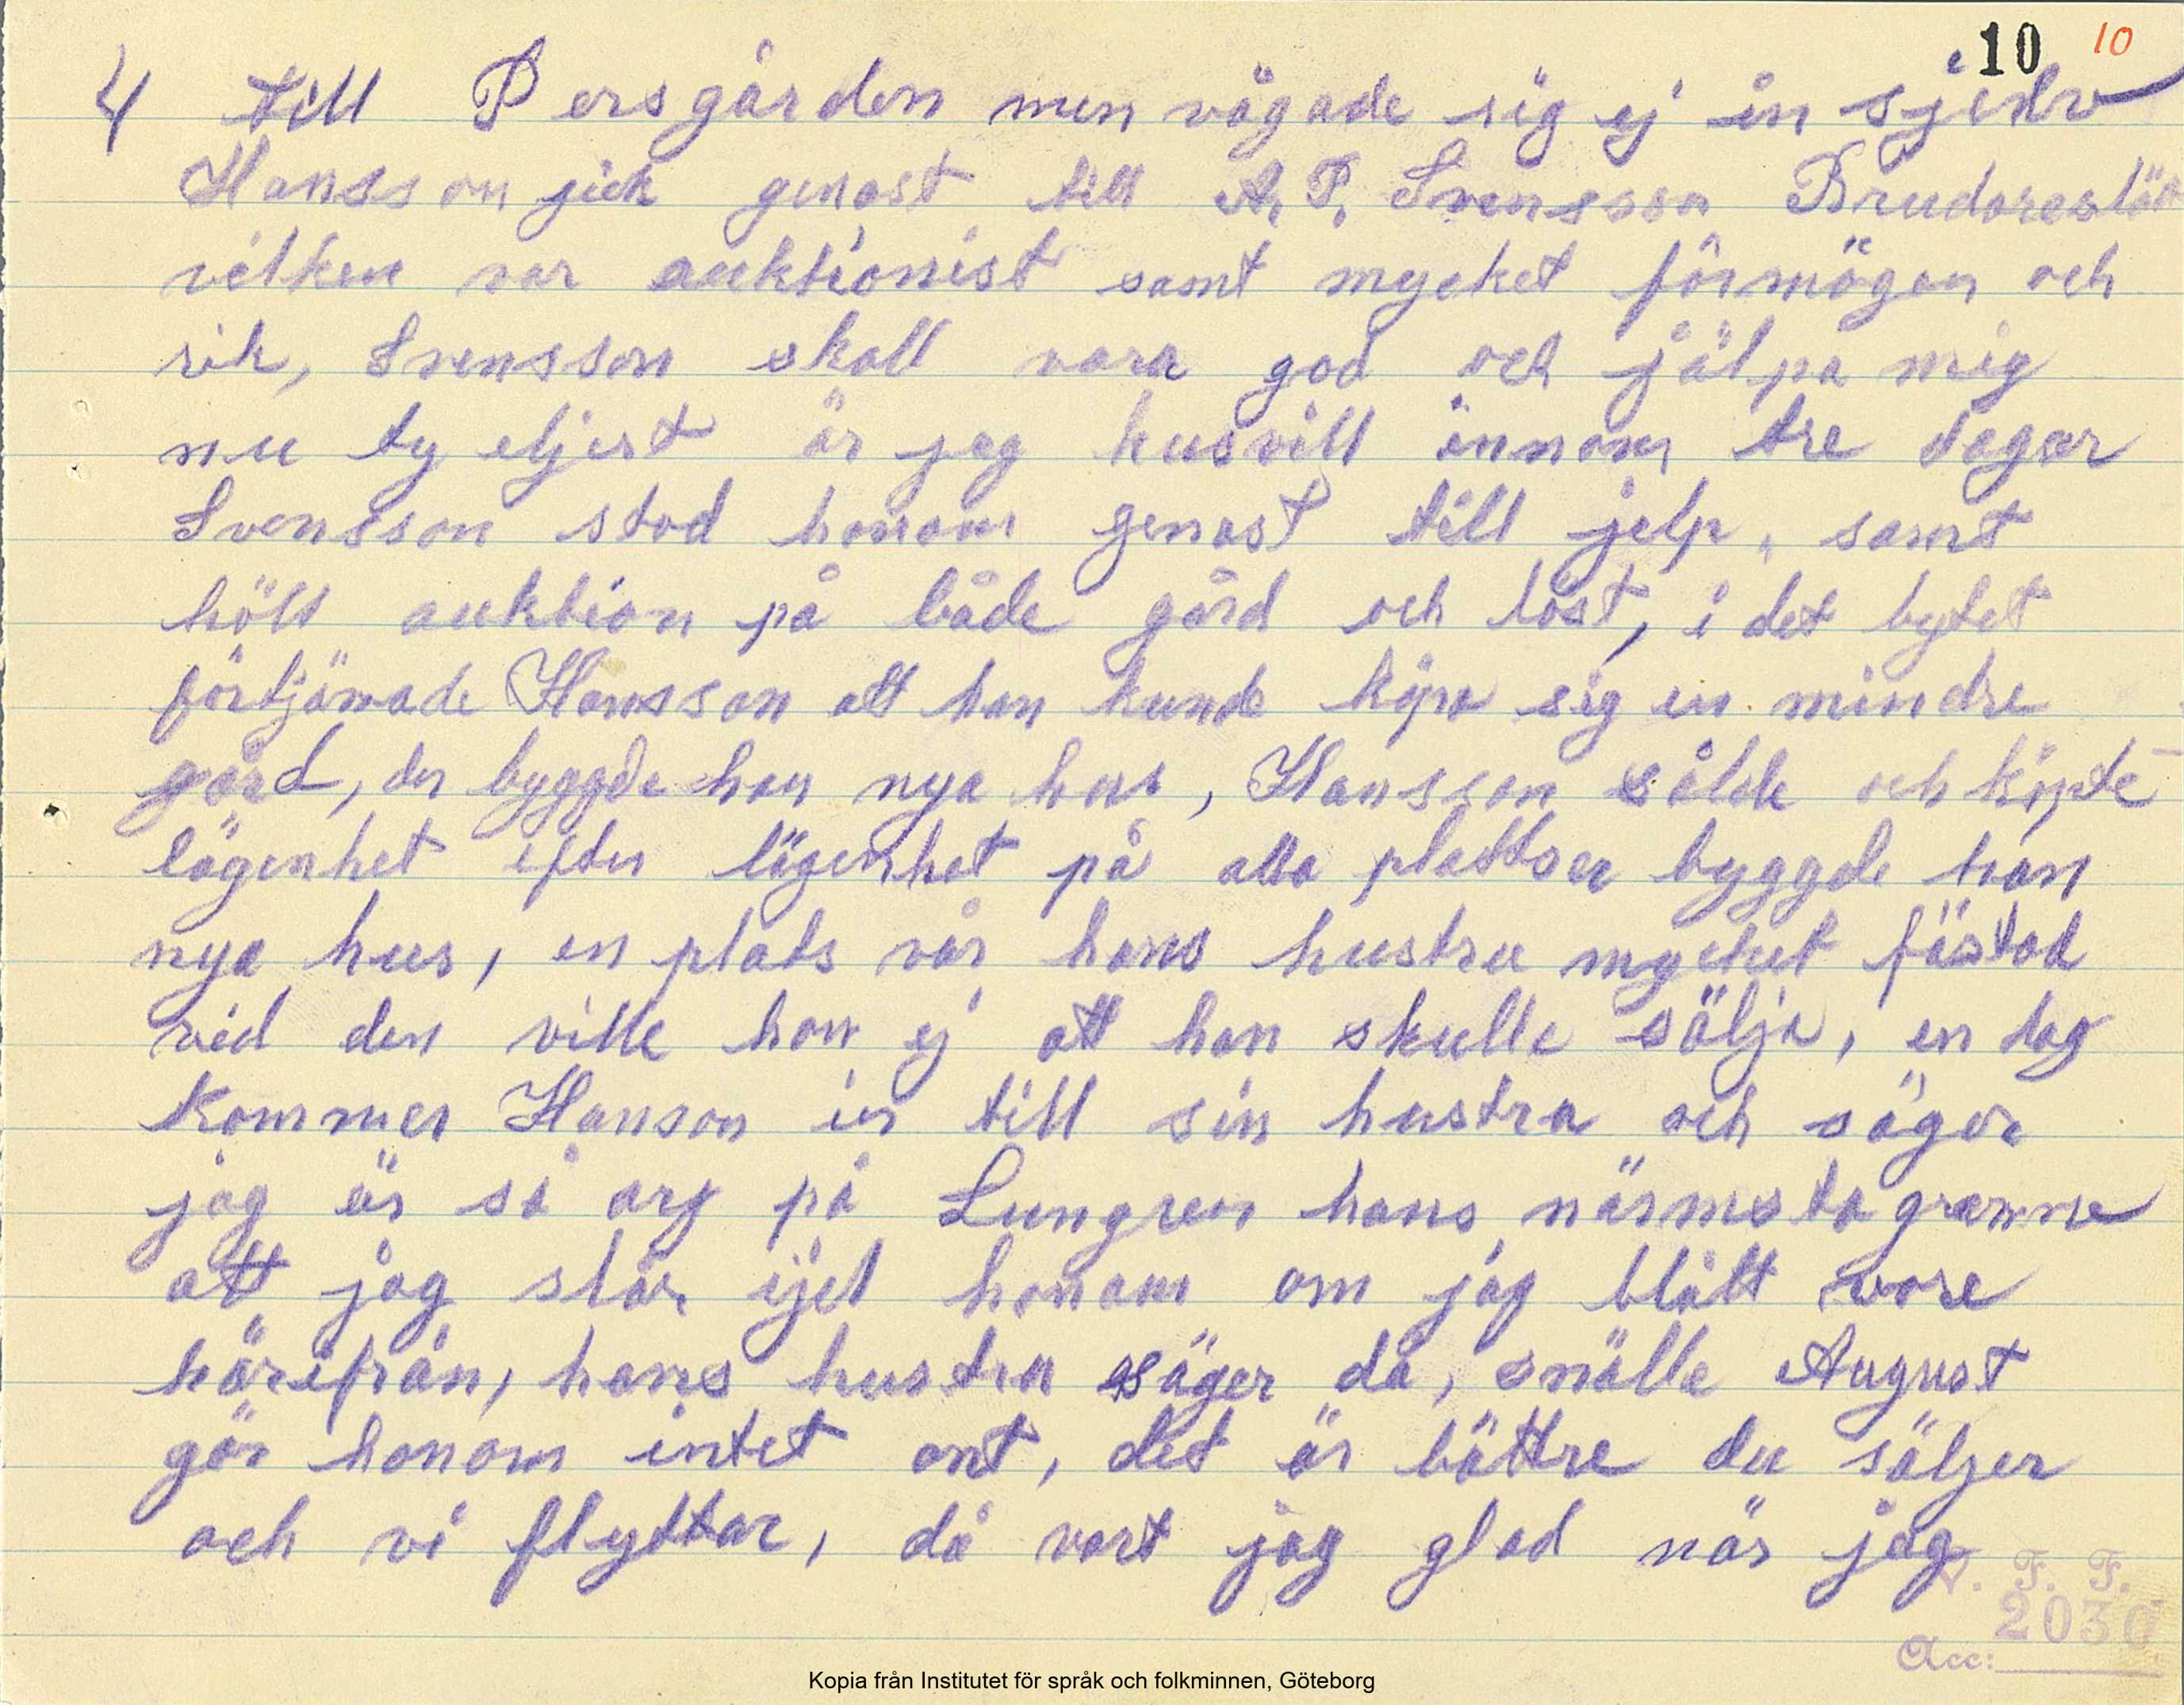 10 10
4 till Persgården men vågade sig ej in sjelv
Hansson jick genast till A, P, Svensson
vilken var auktionist samt mycket förmögen och
rik, Svensson skall vara god och jälpa mig
nu ty eljest är jag husvill innom tre dagar
Svensson stod honom genast till jelp, samt
höll auktion på både gård och löst, i det bytet
förtjänade Hansson att han kunde köpa sig en mindre
gård, der byggde han nya hus, Hansson sålde och köpte
lägenhet efter lägenhet på alla plattser byggde han
nya hus, en plats var hans hustru mycket fästad
vid den ville hon ej att han skulle sälja, en dag
kommer Hanson in till sin hustra och säger
jag är så arg på Lungren hans närmsta granne
att jag slår ijel honom om jag blått vore
härifrån, hans hustru säger då, snälle August
gör honom intet ont, det är bättre du säljer
och vi flyttar, då vart jag glad når jag
V. F. F.
2030
Acc:
Kopia från Institutet för språk och folkminnen, Göteborg